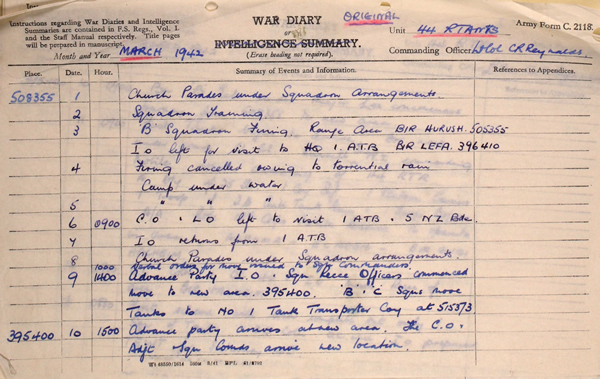 Instructions regarding War Diaries and Intelligence
Summaries are contained in F.S. Regs., Vol. I.
and the Staff Manual respectively. Title pages
will be prepared in manuscript.
Month and Year MARCH 1942
WAR DIARY
or
INTELLIGENCE SUMMARY.
(Erase heading not required).
ORIGINAL
Army Form C. 2118.
Unit 44 R TANKS
Commanding Officer Lt Col C R Reynolds
Place. Date. Hour. Summary of Events and Information. References to Appendices.
508355 1 Church Parades under Squadron Arrangements
2 Squadron Training
3 'B' Squadron Firing. Range Area BIR HURUSH. 505355
I O left for visit to HQ 1. A.T.B BIR LEFA. 396410
4 Firing cancelled owing to torrential rain
Camp under water
5 " " "
6 0900 C.O. I.O left to visit 1 ATB. 5 NZ Bde.
7 IO returns from 1 ATB
8 Church Parades under Squadron arrangements.
1000 Verbal orders for move issued to Sqn Commanders.
9 1400 Advance Party I.O. Sqn Recce Officers commenced
move to new area. 395400. 'B' 'C' Sqns move
Tanks to No 1 Tank Transporter Coy at 515373
395400 10 1500 Advance party arrives at new area. The C.O.
Adjt Sqn Comds arrive new location.